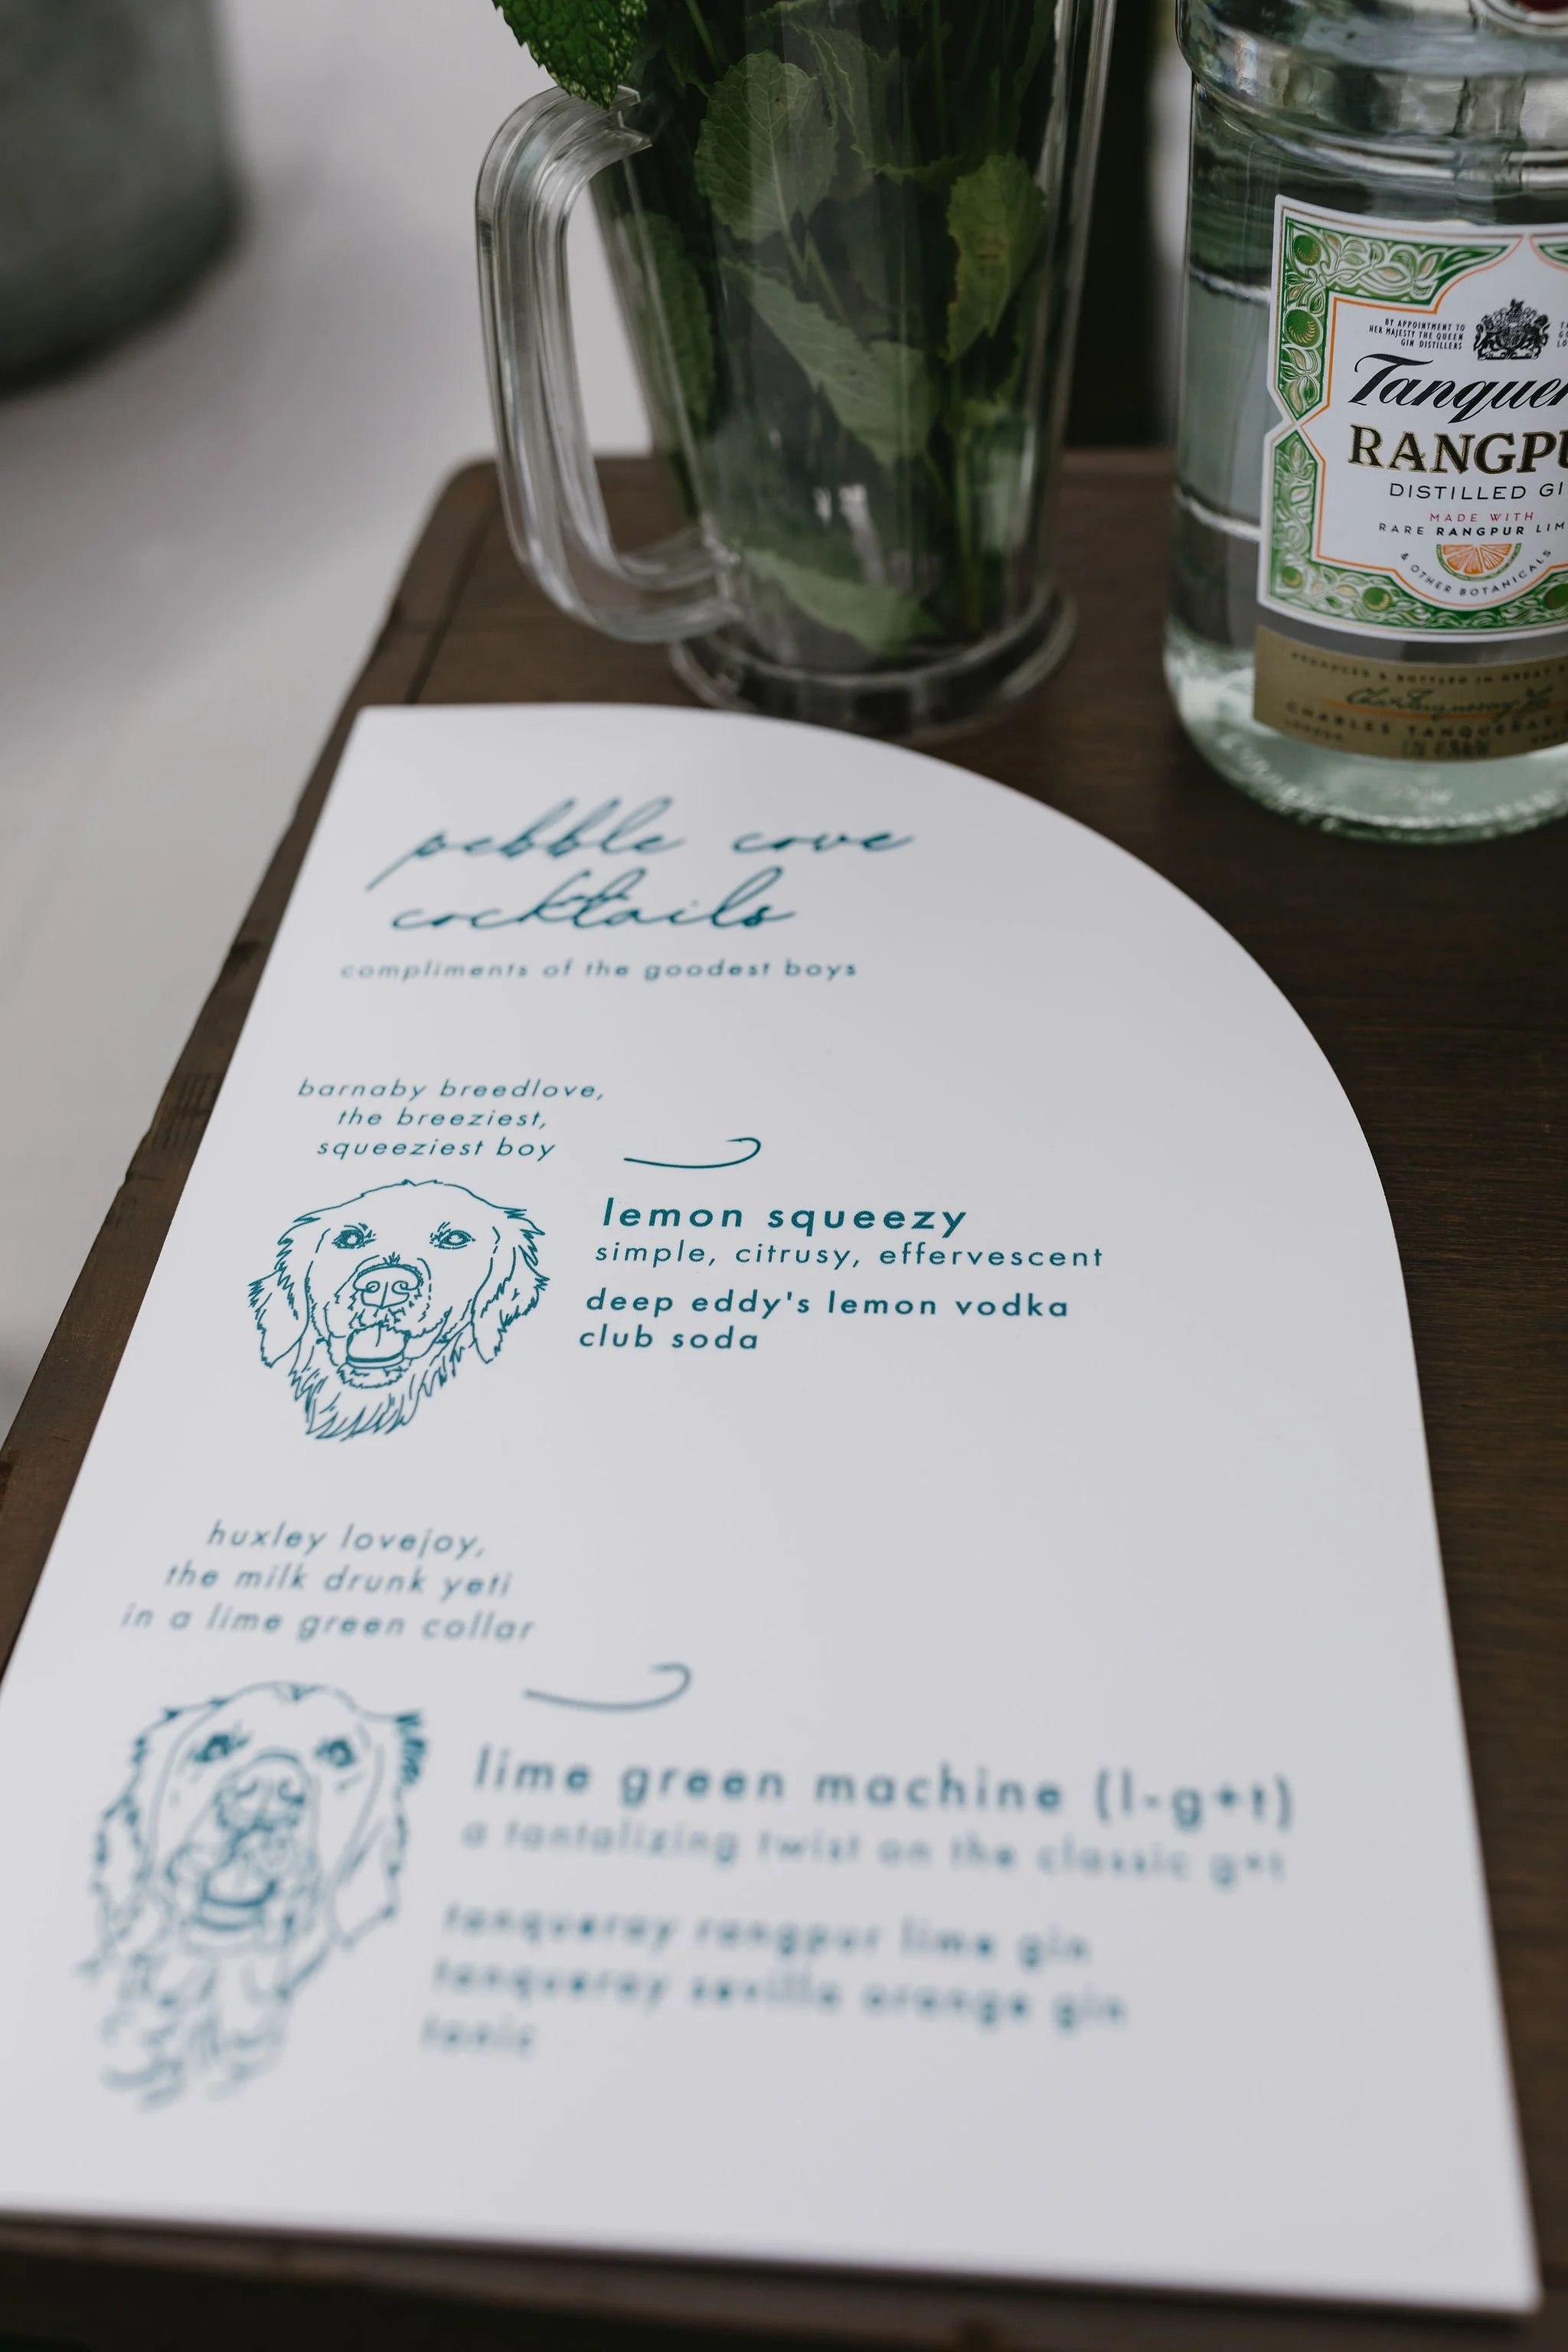 BY APPOINTMENT TO
HER MAJESTY THE QUEEN
GIN DISTILLERS
Tanquer
RANGPU
DISTILLED GI
MADE WITH
RARE RANGPUR LIM
& OTHER BOTANICALS
PRODUCED & BOTTLED IN GREAT
CHARLES TANQUERAY
pebble cove
cocktails
compliments of the goodest boys
barnaby breedlove,
the breeziest,
squeeziest boy
lemon squeezy
simple, citrusy, effervescent
deep eddy's lemon vodka
club soda
huxley lovejoy,
the milk drunk yeti
in a lime green collar
lime green machine (l-g+t)
a tantalizing twist on the classic g+t
tanqueray rangpur lime gin
tanqueray sevilla orange gin
tonic